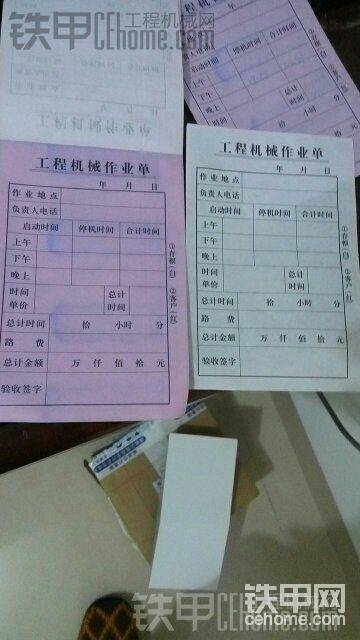 铁甲 工程机械网
CEhome.com
停机时间 合计时间
上午
下午
晚上
时间
单价
总计
时间
总计时间 拾 小时 分
工程机械作业单
年 月 日
作业地点
负责人电话
启动时间 停机时间 合计时间
上午
下午
晚上
时间
单价
总计
时间
总计时间 拾 小时 分
路费
总计金额 万 仟 佰 拾 元
验收签字
①存根(白) ②客户(红)
工程机械作业单
年 月 日
作业地点
负责人电话
启动时间 停机时间 合计时间
上午
下午
晚上
时间
单价
总计
时间
总计时间 拾 小时 分
路费
总计金额 万 仟 佰 拾 元
验收签字
①存根(白) ②客户(红)
铁甲 工程机械网
CEhome.com
铁甲网
cehome.com